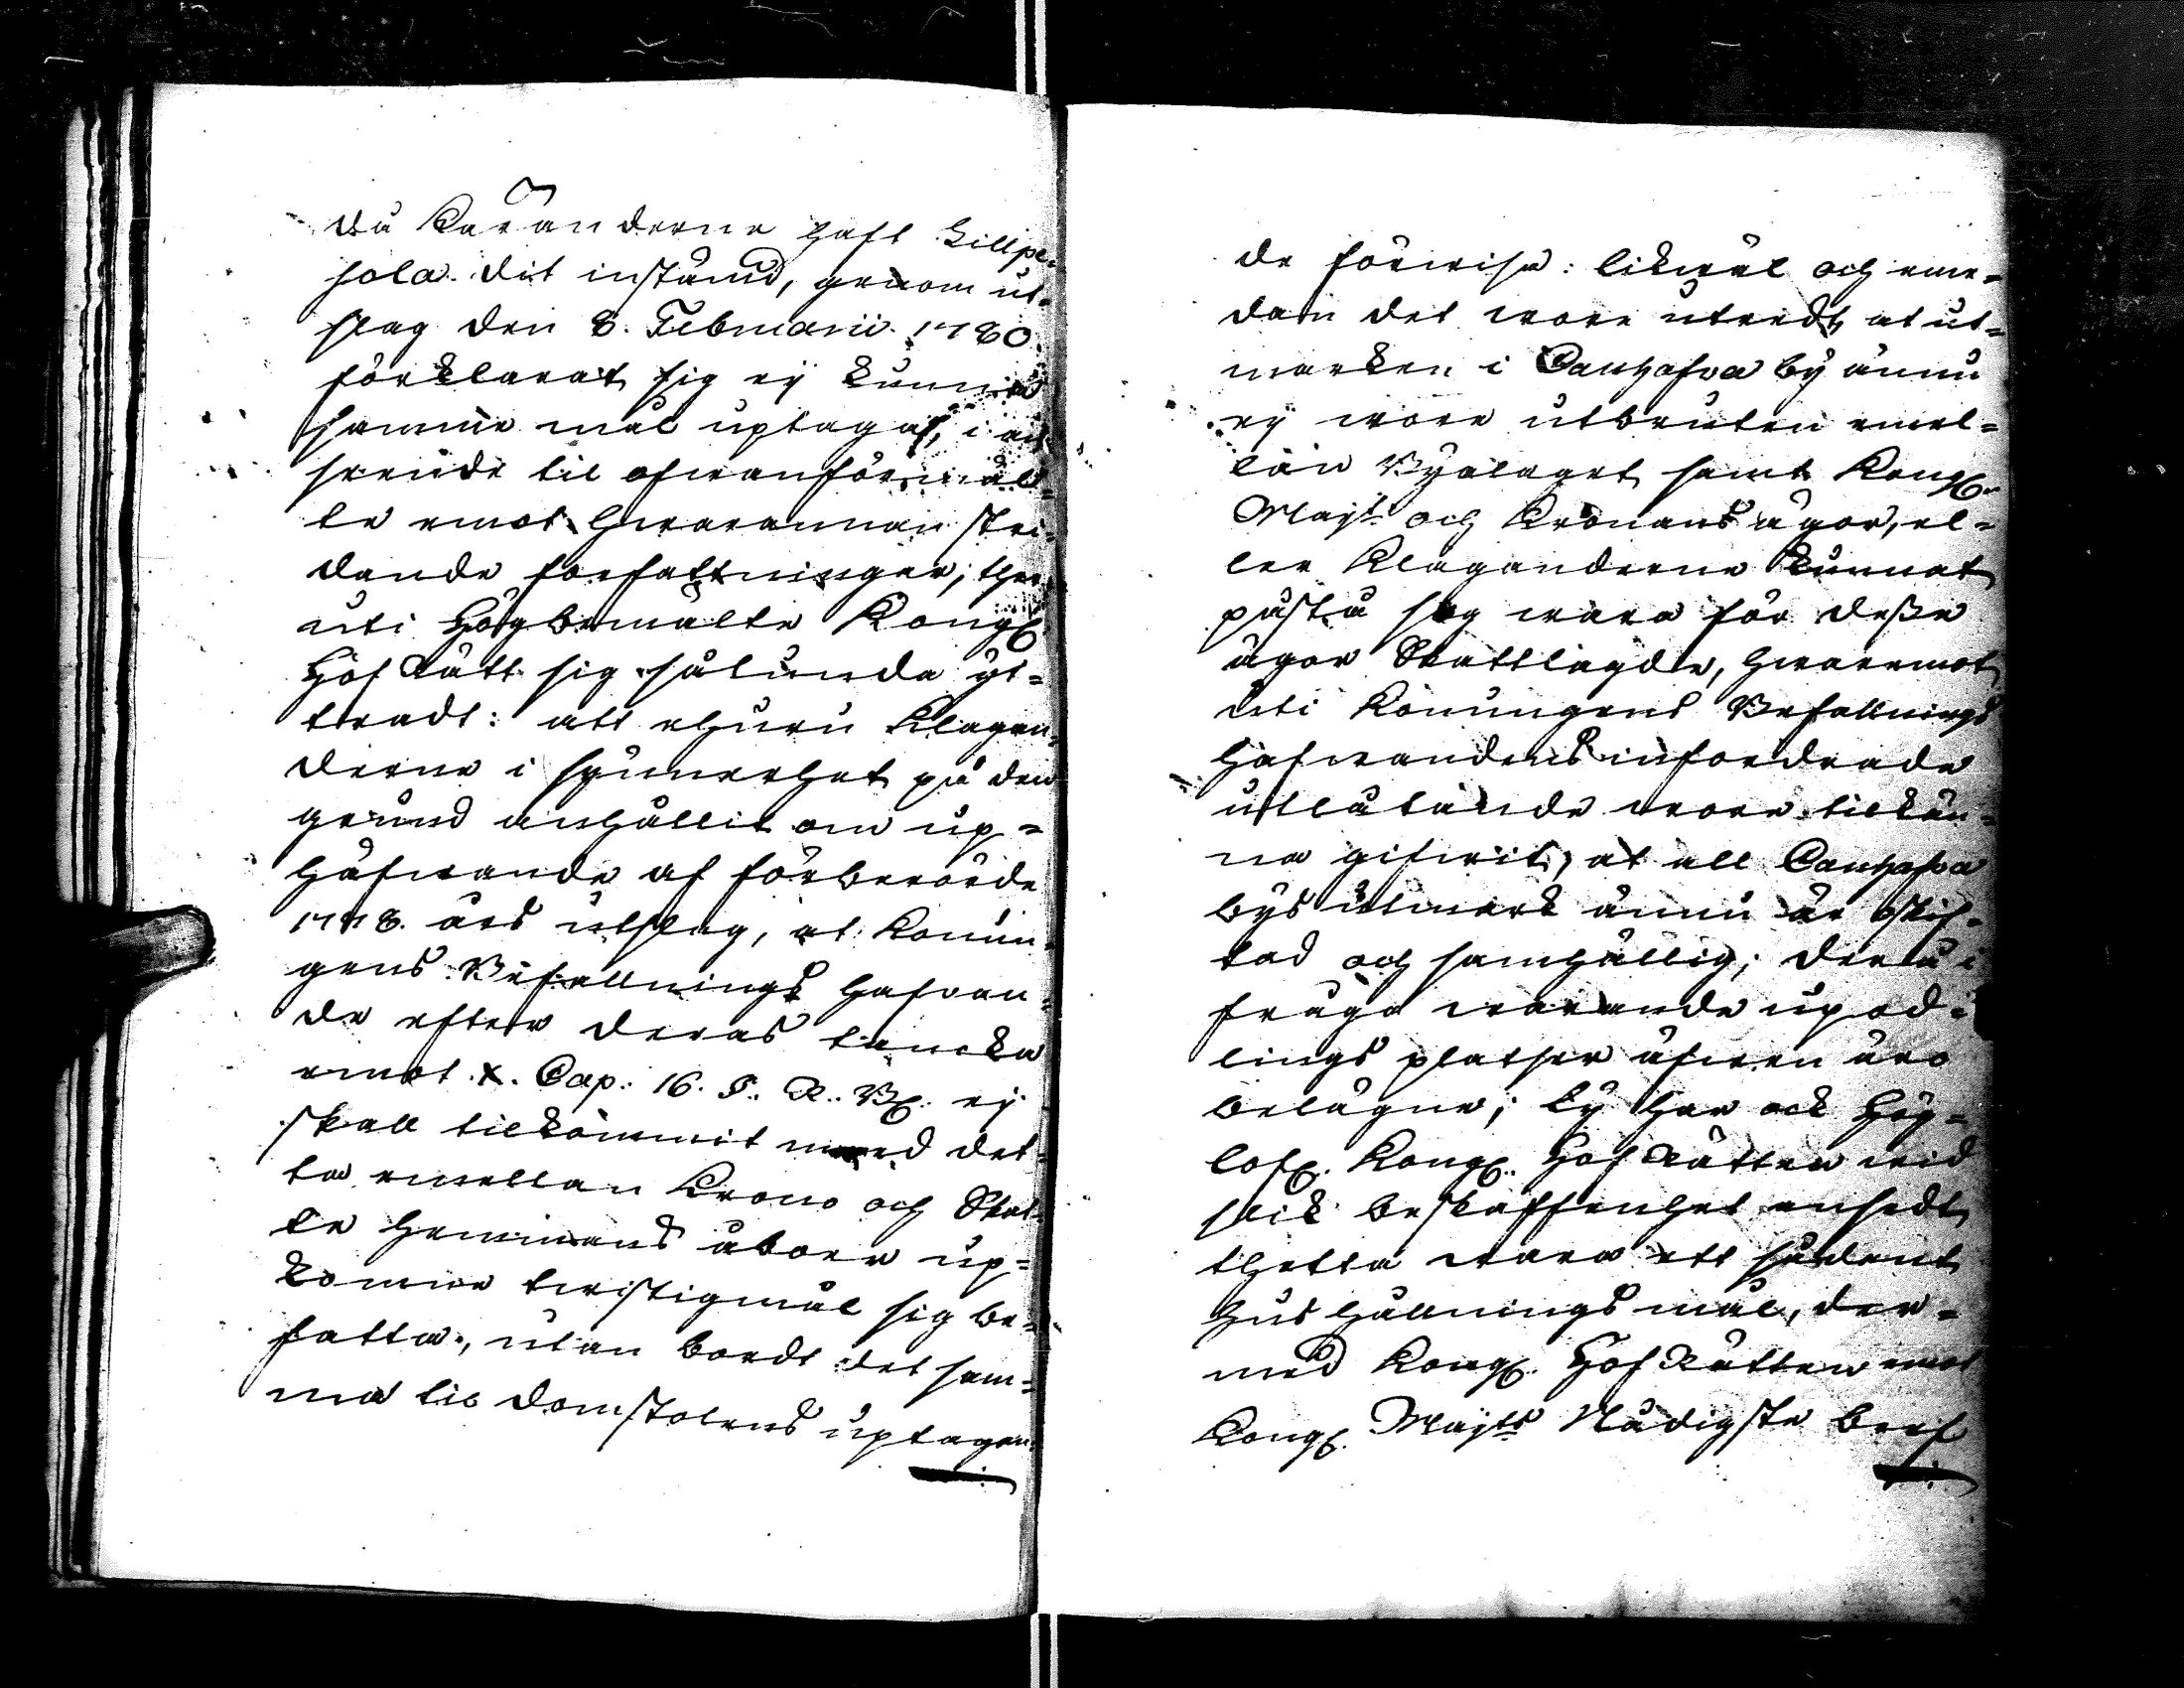 då Käranderne haft Lillpe-
sola dit instämd, genom ut-
slag den 8. Februarii 1780.
förklarat sig ej kunna
samma mål uptaga, i an-
seende til ofwanförmäl-
te emot hwarannan stri-
dande författningar; ther
uti Högbemälte Kongl.
Hof Rätt sig sålunda yt-
tradt: att ehuru Klagan-
derne i synnerhet på den
grund anhållit om up-
häfwande af förberörde
1778. års utslag, at Konun-
gens Befallnings hafvan-
de efter deras tancka
emot X. Cap: 16. §. R. B. ej
skall tilkommit med det-
ta emellan Krono och Skat-
te Hemmans åboer up-
komne twistigmål sig be-
fatta, utan bordt det sam-
ma til domstolens uptagan-
de förwisa: likwäl och eme-
dan det wore utredt, at ut-
marken i Cauhafva by ännu
ej wore utbruten emel-
lan Byalaget samt Kongl.
Majts och Kronans ägor, el-
ler Klaganderne kunnat
påstå sig wara för desse
ägor Skattlagde, hwaremot
uti Konungens Befallnings
Hafwandens infordrade
utlåtande wore tilkän-
na gifwit, at all Cauhafva
bys utmark ännu är oskif-
tad och samhällig; der å i
fråga warande upod-
lings platser äfwen äro
belägne; ty har ock Hög-
lofl. Kongl. Hof Rätten wid
slik beskaffenhet ansedt
thetta wara ett sådant
Hushållnings mål, der-
med Kongl. Hof Rätten emot
Kongl. Majts Nådigste bref